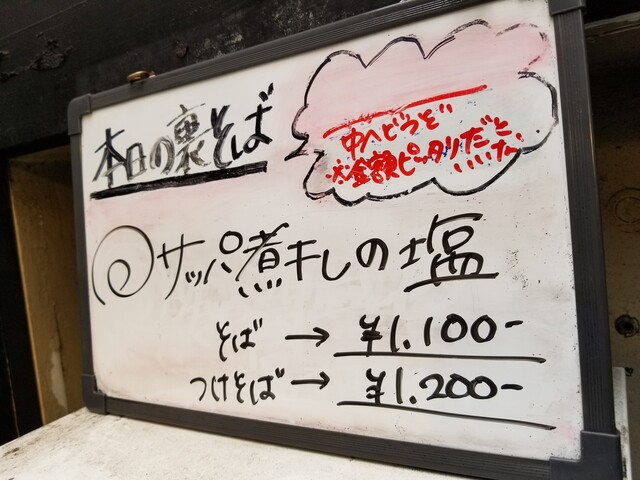 本日の裏そば
中へどうぞ
※金額ピッタリだと
いいな。
サッパ煮干しの塩
そば → ¥1.100-
つけそば → ¥1.200-